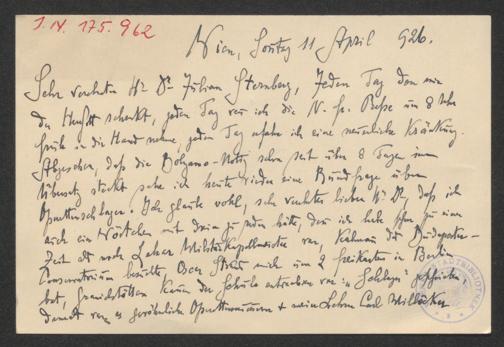 I.N. 175.962
Wien, Sontag 11 April 926.
Sehr verehrter Hr Dr Julian Sternberg, Jeden Tag den mir
der Herrgott schenkt, jeden Tag wo ich die N. fr. Presse um 8 Uhr
früh in die Hand nehme, jeden Tag erfahre ich eine neuerliche Kränkung.
Abgesehen, daß die Notiz schon seit über 8 Tagen im
Übersatz steckt sehe ich heute wieder eine Rundfrage über
Operettenschlager. Ich glaube wohl, sehr verehrter lieber Hr Dr, daß ich
auch ein Wörtchen mit drein zu reden hätte, denn ich habe schon zu einer
Zeit als noch Lehar Militärkapellmeister war, Kalman das Budapester-
Conservatorium besuchte, Oscar Straus mich um 2 Freikarten in Berlin
bat, Granichstätten kaum der Schule entwachsen war
damals war es Operettenmänner + mein Lehrer Carl Millöcker
STADTBIBLIOTHEK